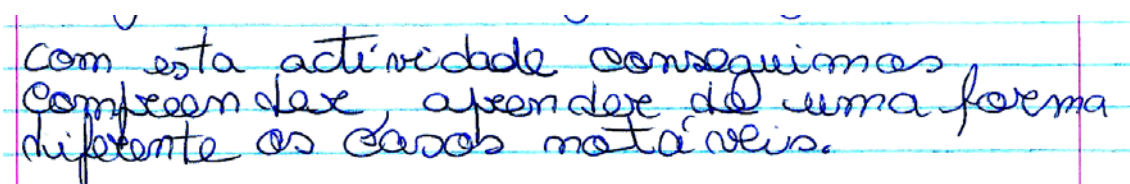 com esta actividade conseguimos
compreender, aprender de uma forma
diferente os casos notáveis.